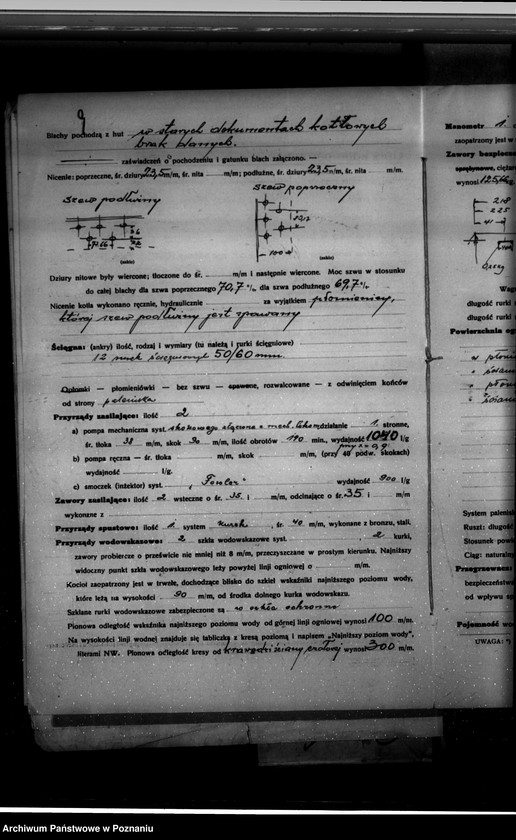 9
Blachy pochodzą z hut w starych dokumentach kotłowych
brak danych.
zaświadczeń o pochodzeniu i gatunku blach załączono. —
Nicenie: poprzeczne, śr. dziury 23,5 m/m, śr. nita m/m; podłużne, śr. dziury 23,5 m/m, śr. nita m/m.
szew podłużny
szew poprzeczny
100
(szkic) (szkic)
Dziury nitowe były wiercone; tłoczone do śr. m/m i następnie wiercone. Moc szwu w stosunku
do całej blachy dla szwa poprzecznego 70,7 % dla szwa podłużnego 69,7 %
Nicenie kotła wykonano ręcznie, hydraulicznie za wyjątkiem płomienicy,
której szew podłużny jest spawany
Ściągna: (ankry) ilość, rodzaj i wymiary (tu należą i rurki ściągniowe)
12 rurek ściągowych 50/60 mm.
Opłomki — płomieniówki — bez szwu — spawane, rozwalcowane — z odwinięciem końców
od strony paleniska
Przyrządy zasilające: ilość 2
a) pompa mechaniczna syst. działanie 1 stronne,
śr. tłoka 38 m/m, skok 90 m/m, ilość obrotów 190 min., wydajność 1040 l/g
przy = 0,9
b) pompa ręczna — śr. tłoka m/m, skok m/m, (przy 40 podw. skokach)
wydajność l/g.
c) smoczek (inżektor) syst. wydajność 900 l/g
Zawory zasilające: ilość 2 wsteczne o śr. 35 i m/m, odcinające o śr. 35 i m/m
wykonane z
Przyrządy spustowe: ilość 1 system kurek, śr. 40 m/m, wykonane z bronzu, stali.
Przyrządy wodowskazowe: 2 szkła wodowskazowe syst. , 2 kurki,
zawory probiercze o prześwicie nie mniej niż 8 m/m, przeczyszczane w prostym kierunku. Najniższy
widoczny punkt szkła wodowskazowego leży powyżej linji ogniowej o m/m.
Kocioł zaopatrzony jest w trwałe, dochodzące blisko do szkieł wskaźniki najniższego poziomu wody,
które leżą na wysokości 90 m/m, od środka dolnego kurka wodowskazu.
Szklane rurki wodowskazowe zabezpieczone są w szkła ochronne
Pionowa odległość wskaźnika najniższego poziomu wody od górnej linji ogniowej wynosi 100 m/m.
Na wysokości linji wodnej znajduje się tabliczka z kresą poziomą i napisem „Najniższy poziom wody",
literami NW. Pionowa odległość kresy od wynosi 300 m/m.
Manometr 1
zaopatrzony jest w
Zawory bezpiecze
sprężynowe, cięża
wynosi
218
225
41
Wag
długość rurki
długość rurki
Powierzchnia og
System palenis
Ruszt: długość
Stosunek pow
Ciąg: naturaln
Przegrzewacz:
bezpieczeństw
od wpływu sp
Pojemność wod
UWAGA: *)
Archiwum Państwowe w Poznaniu